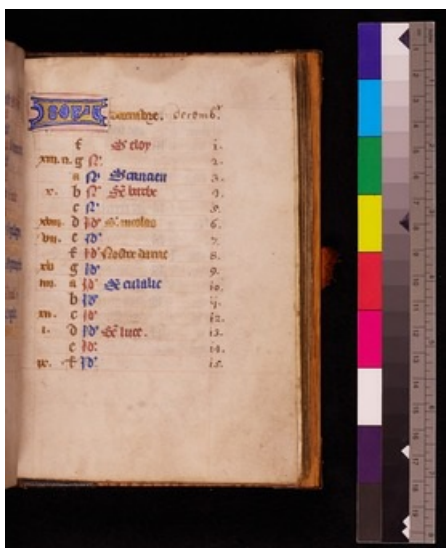 decembre. decemb.
f S eloy 1.
xiii. n. g N. 2.
a N. 3.
x. b N. Sē barbe 4.
c N. 5.
xviii. d id' S. nicolas 6.
vii. e id' 7.
f id' Nostre dame 8.
g id' 9.
iiii. a id' Sē eulalie 10.
b id' 11.
xii. c id' 12.
i. d id' Sē luce. 13.
e id. 14.
ix. f id' 15.